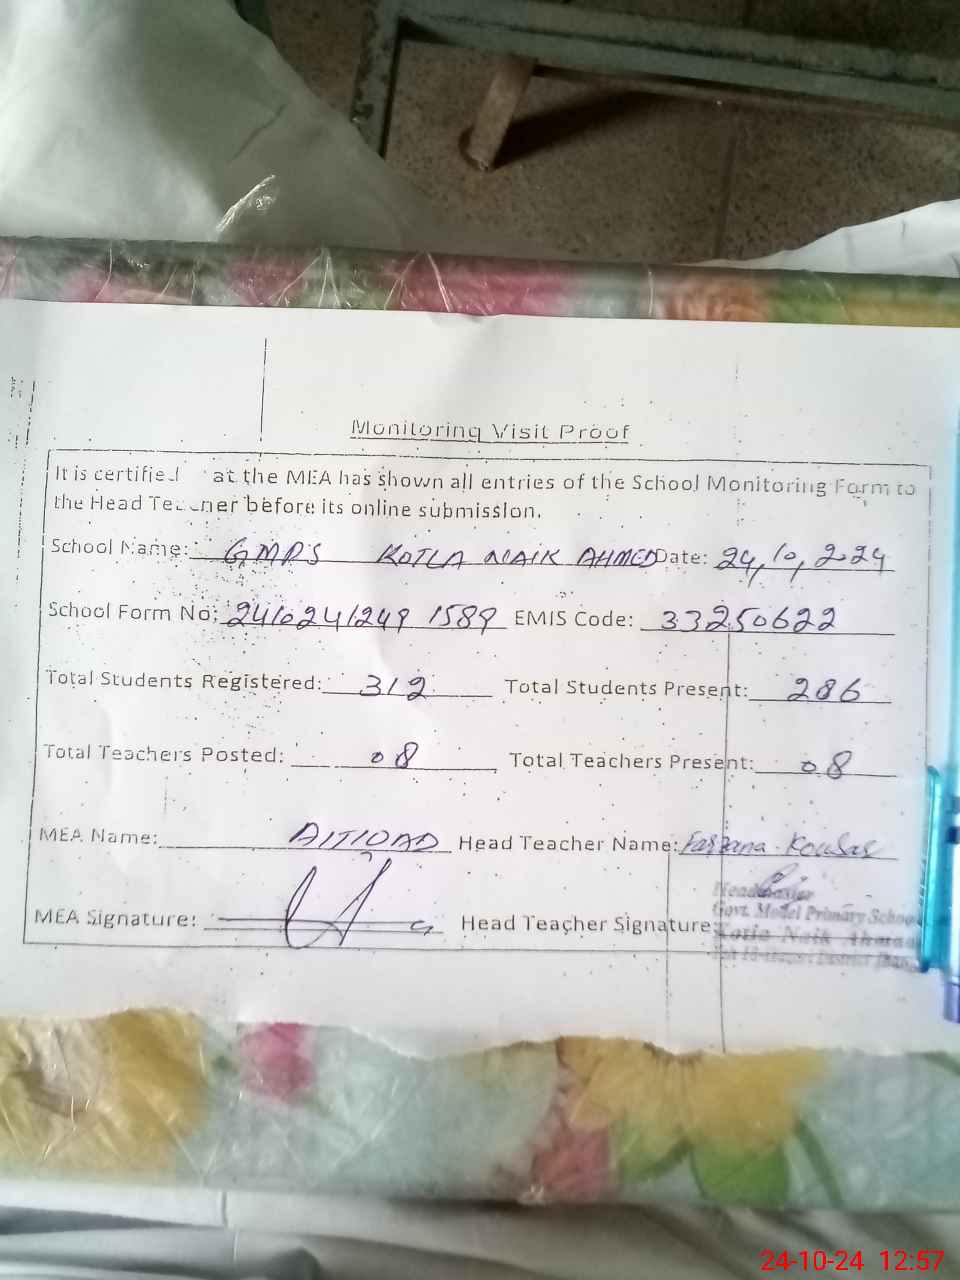 Monitoring Visit Proof
It is certified at the MEA has shown all entries of the School Monitoring Form to
the Head Teacher before its online submission.
School Name: GMPS KOTLA NAIK AHMED Date: 24,10,2024
School Form No: 2410241249 1589 EMIS Code: 33250622
Total Students Registered: 312 Total Students Present: 286
Total Teachers Posted: 08 Total Teachers Present: 08
MEA Name: Head Teacher Name: Farzana Kousar
MEA Signature: Head Teacher Signature
Headmaster
Govt. Model Primary School
Kotla Naik Ahmad
24-10-24 12:57